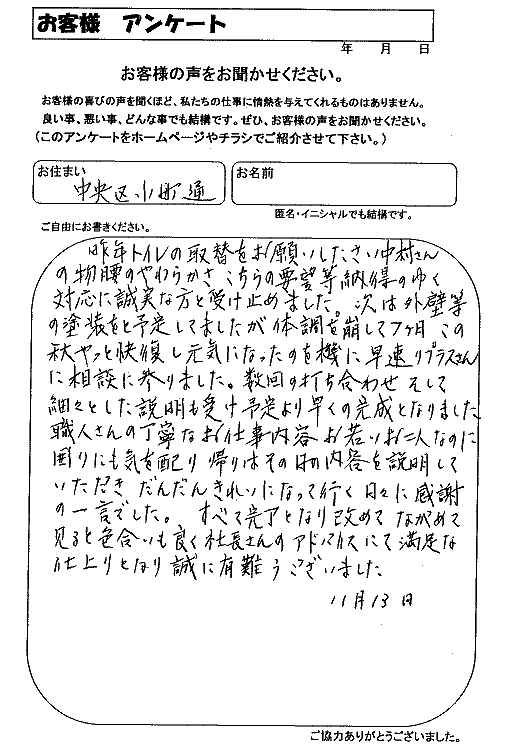 お客様 アンケート
年 月 日
お客様の声をお聞かせください。
お客様の喜びの声を聞くほど、私たちの仕事に情熱を与えてくれるものはありません。
良い事、悪い事、どんな事でも結構です。ぜひ、お客様の声をお聞かせください。
(このアンケートをホームページやチラシでご紹介させて下さい。)
お住まい
中央区小町通
お名前
匿名・イニシャルでも結構です。
ご自由にお書きください。
昨年トイレの取替をお願いしたさい中村さん
の物腰のやわらかさ こちらの要望等納得のゆく
対応に誠実な方と受け止めました。次は外壁等
の塗装をと予定してましたが体調を崩して7ヶ月 この
秋やっと快復し元気になったのを機に早速リプラスさん
に相談に参りました。数回の打ち合わせ そして
細々とした説明も受け予定より早くの完成となりました
職人さんの丁寧なお仕事内容 お若いお二人なのに
囲りにも気を配り 帰りはその日の内容を説明して
いただき だんだんきれいになって行く日々に感謝
の一言でした。 すべて完了となり改めて ながめて
見ると色合いも良く社長さんのアドバイスにて満足な
仕上りとなり 誠に有難うございました
11月13日
ご協力ありがとうございました。